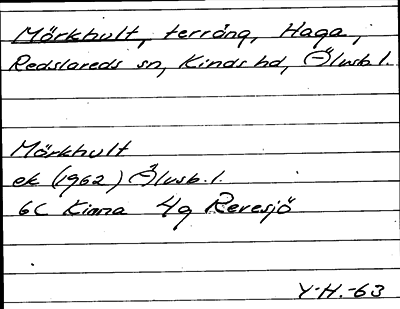 Mörkhult, terräng, Haga,
Redslareds sn, Kinds hd, Älvsb. l.
Mörkhult
ek (1962) Älvsb. l.
6C Kinna 4g Revesjö
Y-H.-63